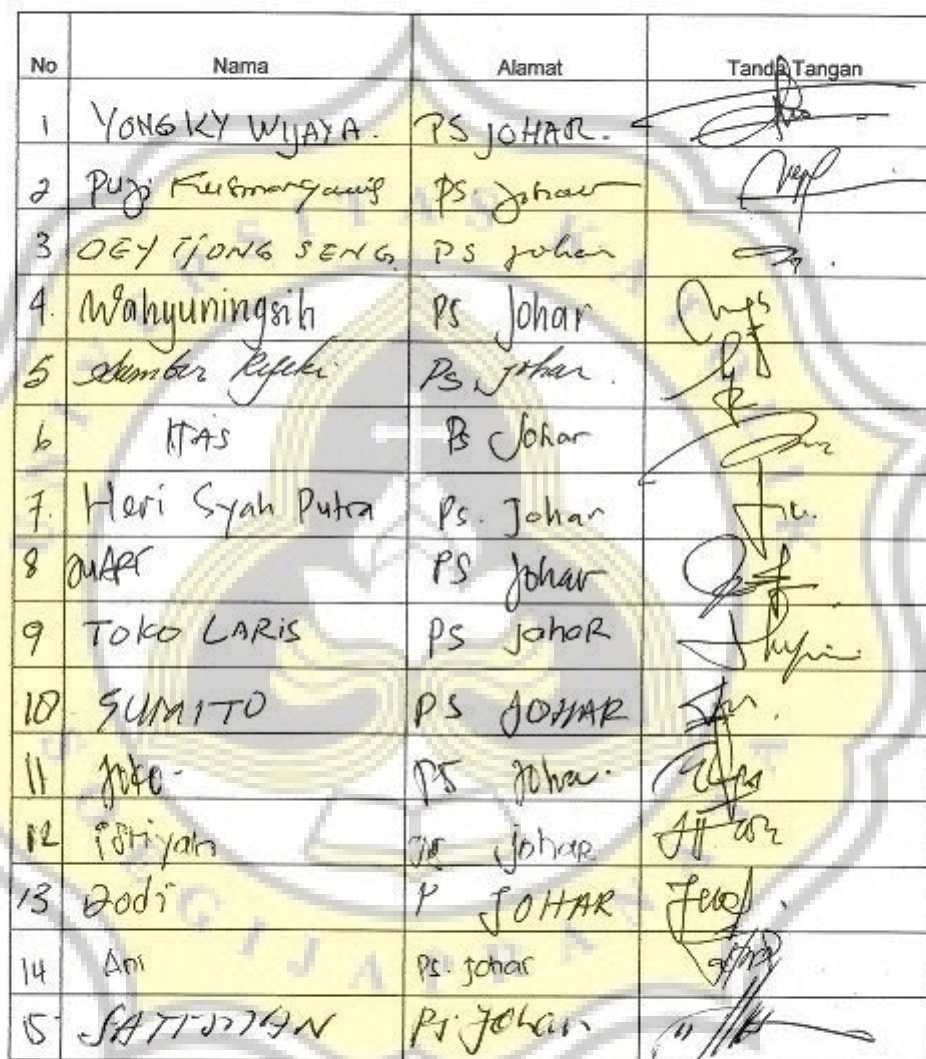 No Nama Alamat Tanda Tangan
1 YONGKY WIJAYA. PS JOHAR.
2 Puji PS Johar
3 OEY TJONG SENG PS Johar
4. Wahyuningsih PS Johar
5 Sumber Rejeki PS Johar.
6 ITAS PS Johar
7. Heri Syah Putra Ps. Johar
8 PS Johar
9 TOKO LARIS PS JohaR
10 SUMITO PS JOHAR
11 Joko PS Johar.
12 istiyah Johar
13 Dodi P JOHAR
14 Ani Ps. Johar
15 Ps Johar